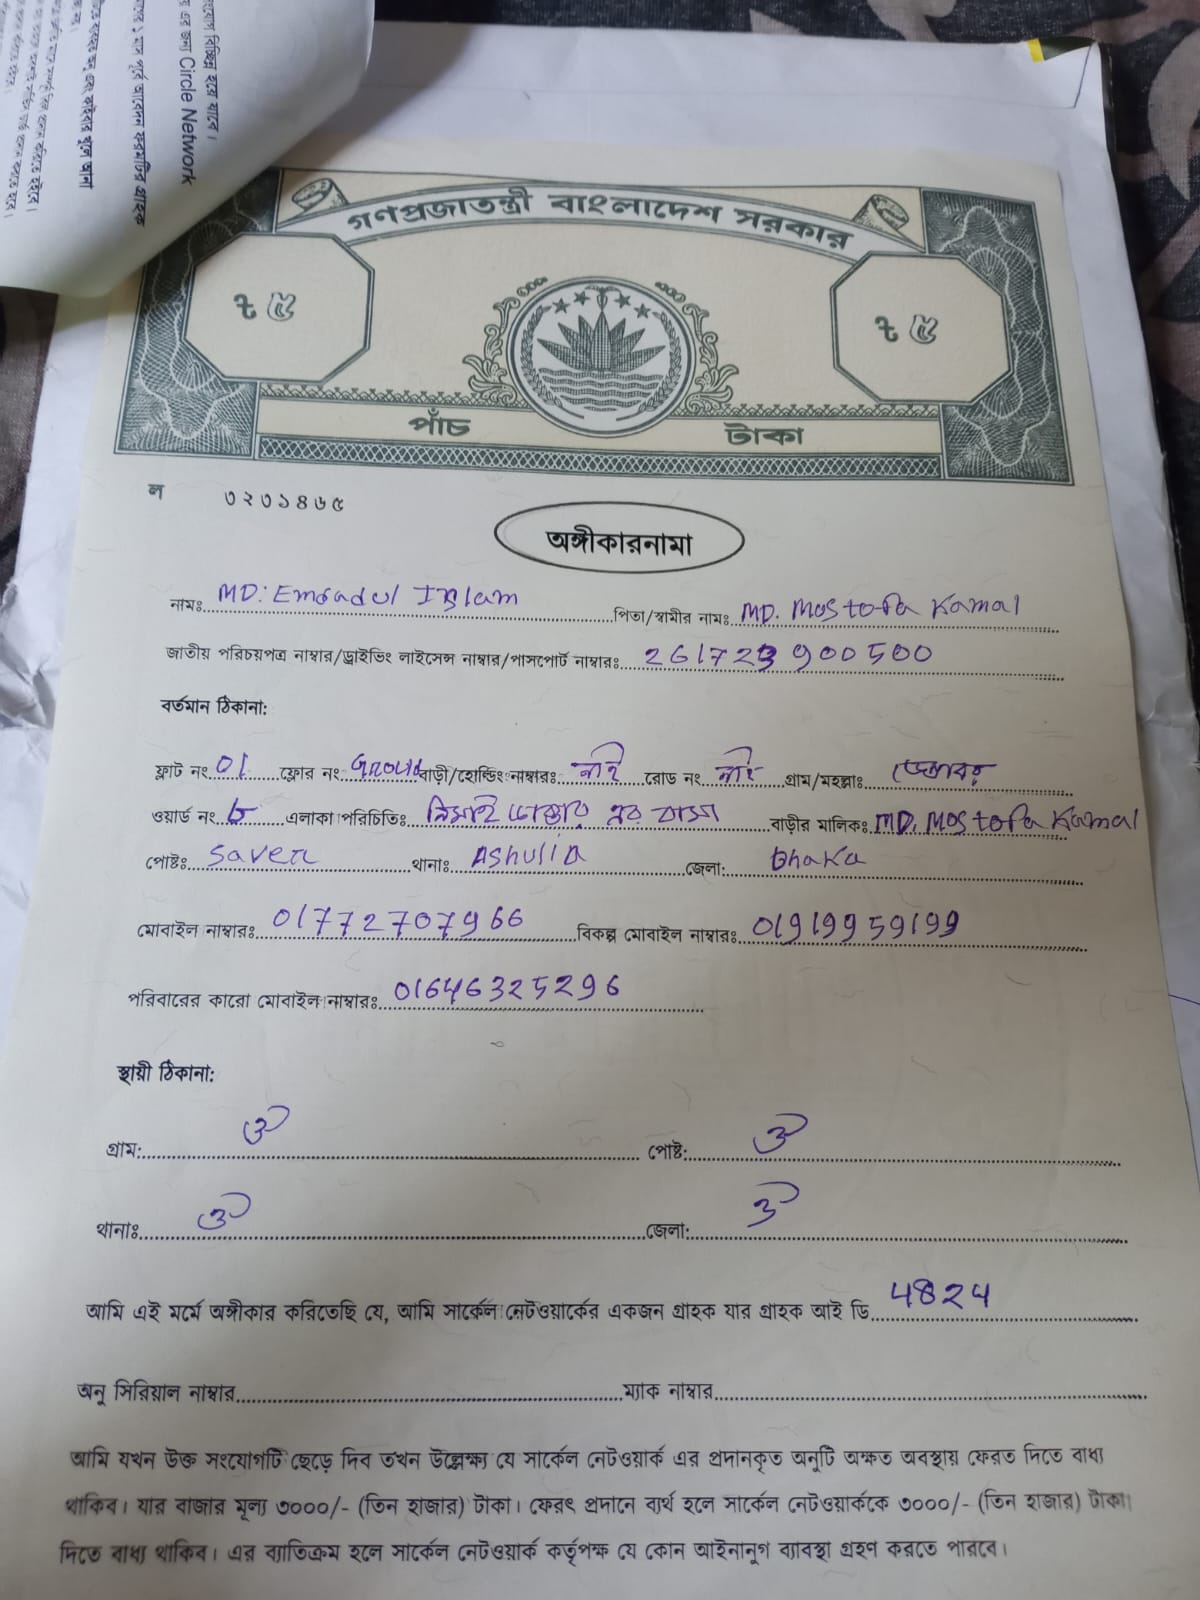 সংযোগ বিচ্ছিন্ন হয়ে যাবে।
এর জন্য Circle Network
গণপ্রজাতন্ত্রী বাংলাদেশ সরকার
৳ ৫
৳ ৫
পাঁচ টাকা
ল ৩২৩১৪৬৫
অঙ্গীকারনামা
নামঃ MD: Emdadul Islam পিতা/স্বামীর নামঃ MD. Mostofa Kamal
জাতীয় পরিচয়পত্র নাম্বার/ড্রাইভিং লাইসেন্স নাম্বার/পাসপোর্ট নাম্বারঃ 261729900500
বর্তমান ঠিকানা:
ফ্লাট নং 01 ফ্লোর নং Ground বাড়ী/হোল্ডিং নাম্বারঃ নাই রোড নং নাই গ্রাম/মহল্লাঃ
ওয়ার্ড নং ৮ এলাকা পরিচিতিঃ এর বাসা বাড়ীর মালিকঃ MD. Mostofa Kamal
পোষ্টঃ Saver থানাঃ Ashulia জেলা: Dhaka
মোবাইল নাম্বারঃ 01772707966 বিকল্প মোবাইল নাম্বারঃ 01919959199
পরিবারের কারো মোবাইল নাম্বারঃ 01646325296
স্থায়ী ঠিকানা:
গ্রাম: ঐ পোষ্ট: ঐ
থানাঃ ঐ জেলা: ঐ
আমি এই মর্মে অঙ্গীকার করিতেছি যে, আমি সার্কেল নেটওয়ার্কের একজন গ্রাহক যার গ্রাহক আই ডি 4824
অনু সিরিয়াল নাম্বার ম্যাক নাম্বার
আমি যখন উক্ত সংযোগটি ছেড়ে দিব তখন উল্লেক্ষ্য যে সার্কেল নেটওয়ার্ক এর প্রদানকৃত অনুটি অক্ষত অবস্থায় ফেরত দিতে বাধ্য
থাকিব। যার বাজার মূল্য ৩০০০/- (তিন হাজার) টাকা। ফেরৎ প্রদানে ব্যর্থ হলে সার্কেল নেটওয়ার্ককে ৩০০০/- (তিন হাজার) টাকা
দিতে বাধ্য থাকিব। এর ব্যাতিক্রম হলে সার্কেল নেটওয়ার্ক কর্তৃপক্ষ যে কোন আইনানুগ ব্যাবস্থা গ্রহণ করতে পারবে।